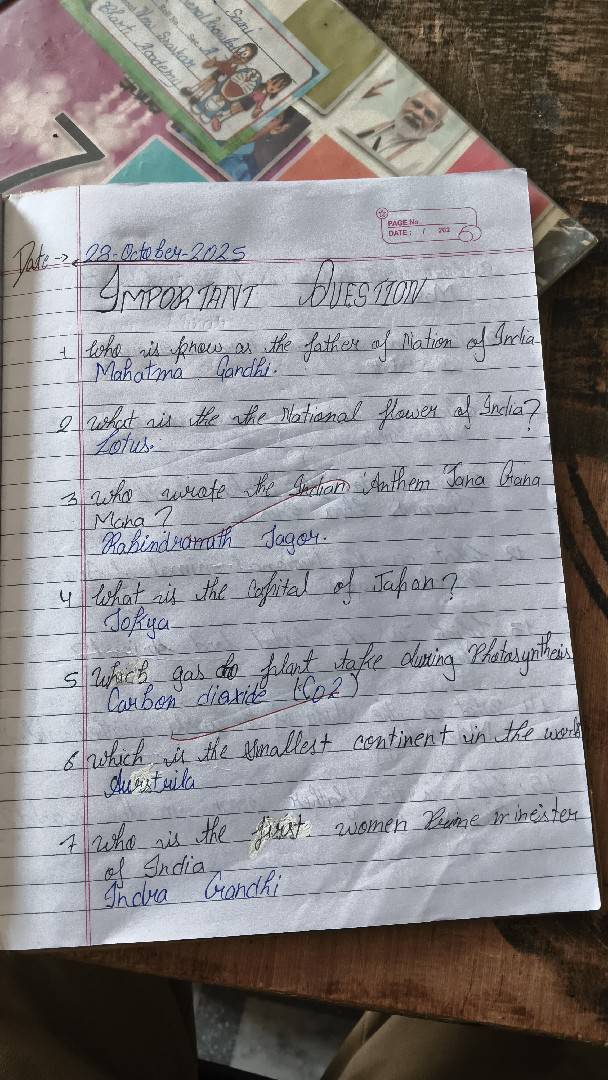 Soni
Bhakti Academy
PAGE No.
DATE: / / 202
Date → 28-October-2025
IMPORTANT QUESTION
1 Who is know as the father of Nation of India
Mahatma Gandhi.
2 What is the the National flower of India?
Lotus.
3 Who wrote the Indian Anthem Jana Gana
Mana?
Rabindranath Tagor.
4 What is the Capital of Japan?
Tokya
5 Which gas do plant take during Photasynthesis
Carbon dioxide (CO2)
6 which is the smallest continent in the world
Aurstrila
7 Who is the first women Prime mineister
of India
Indra Gandhi